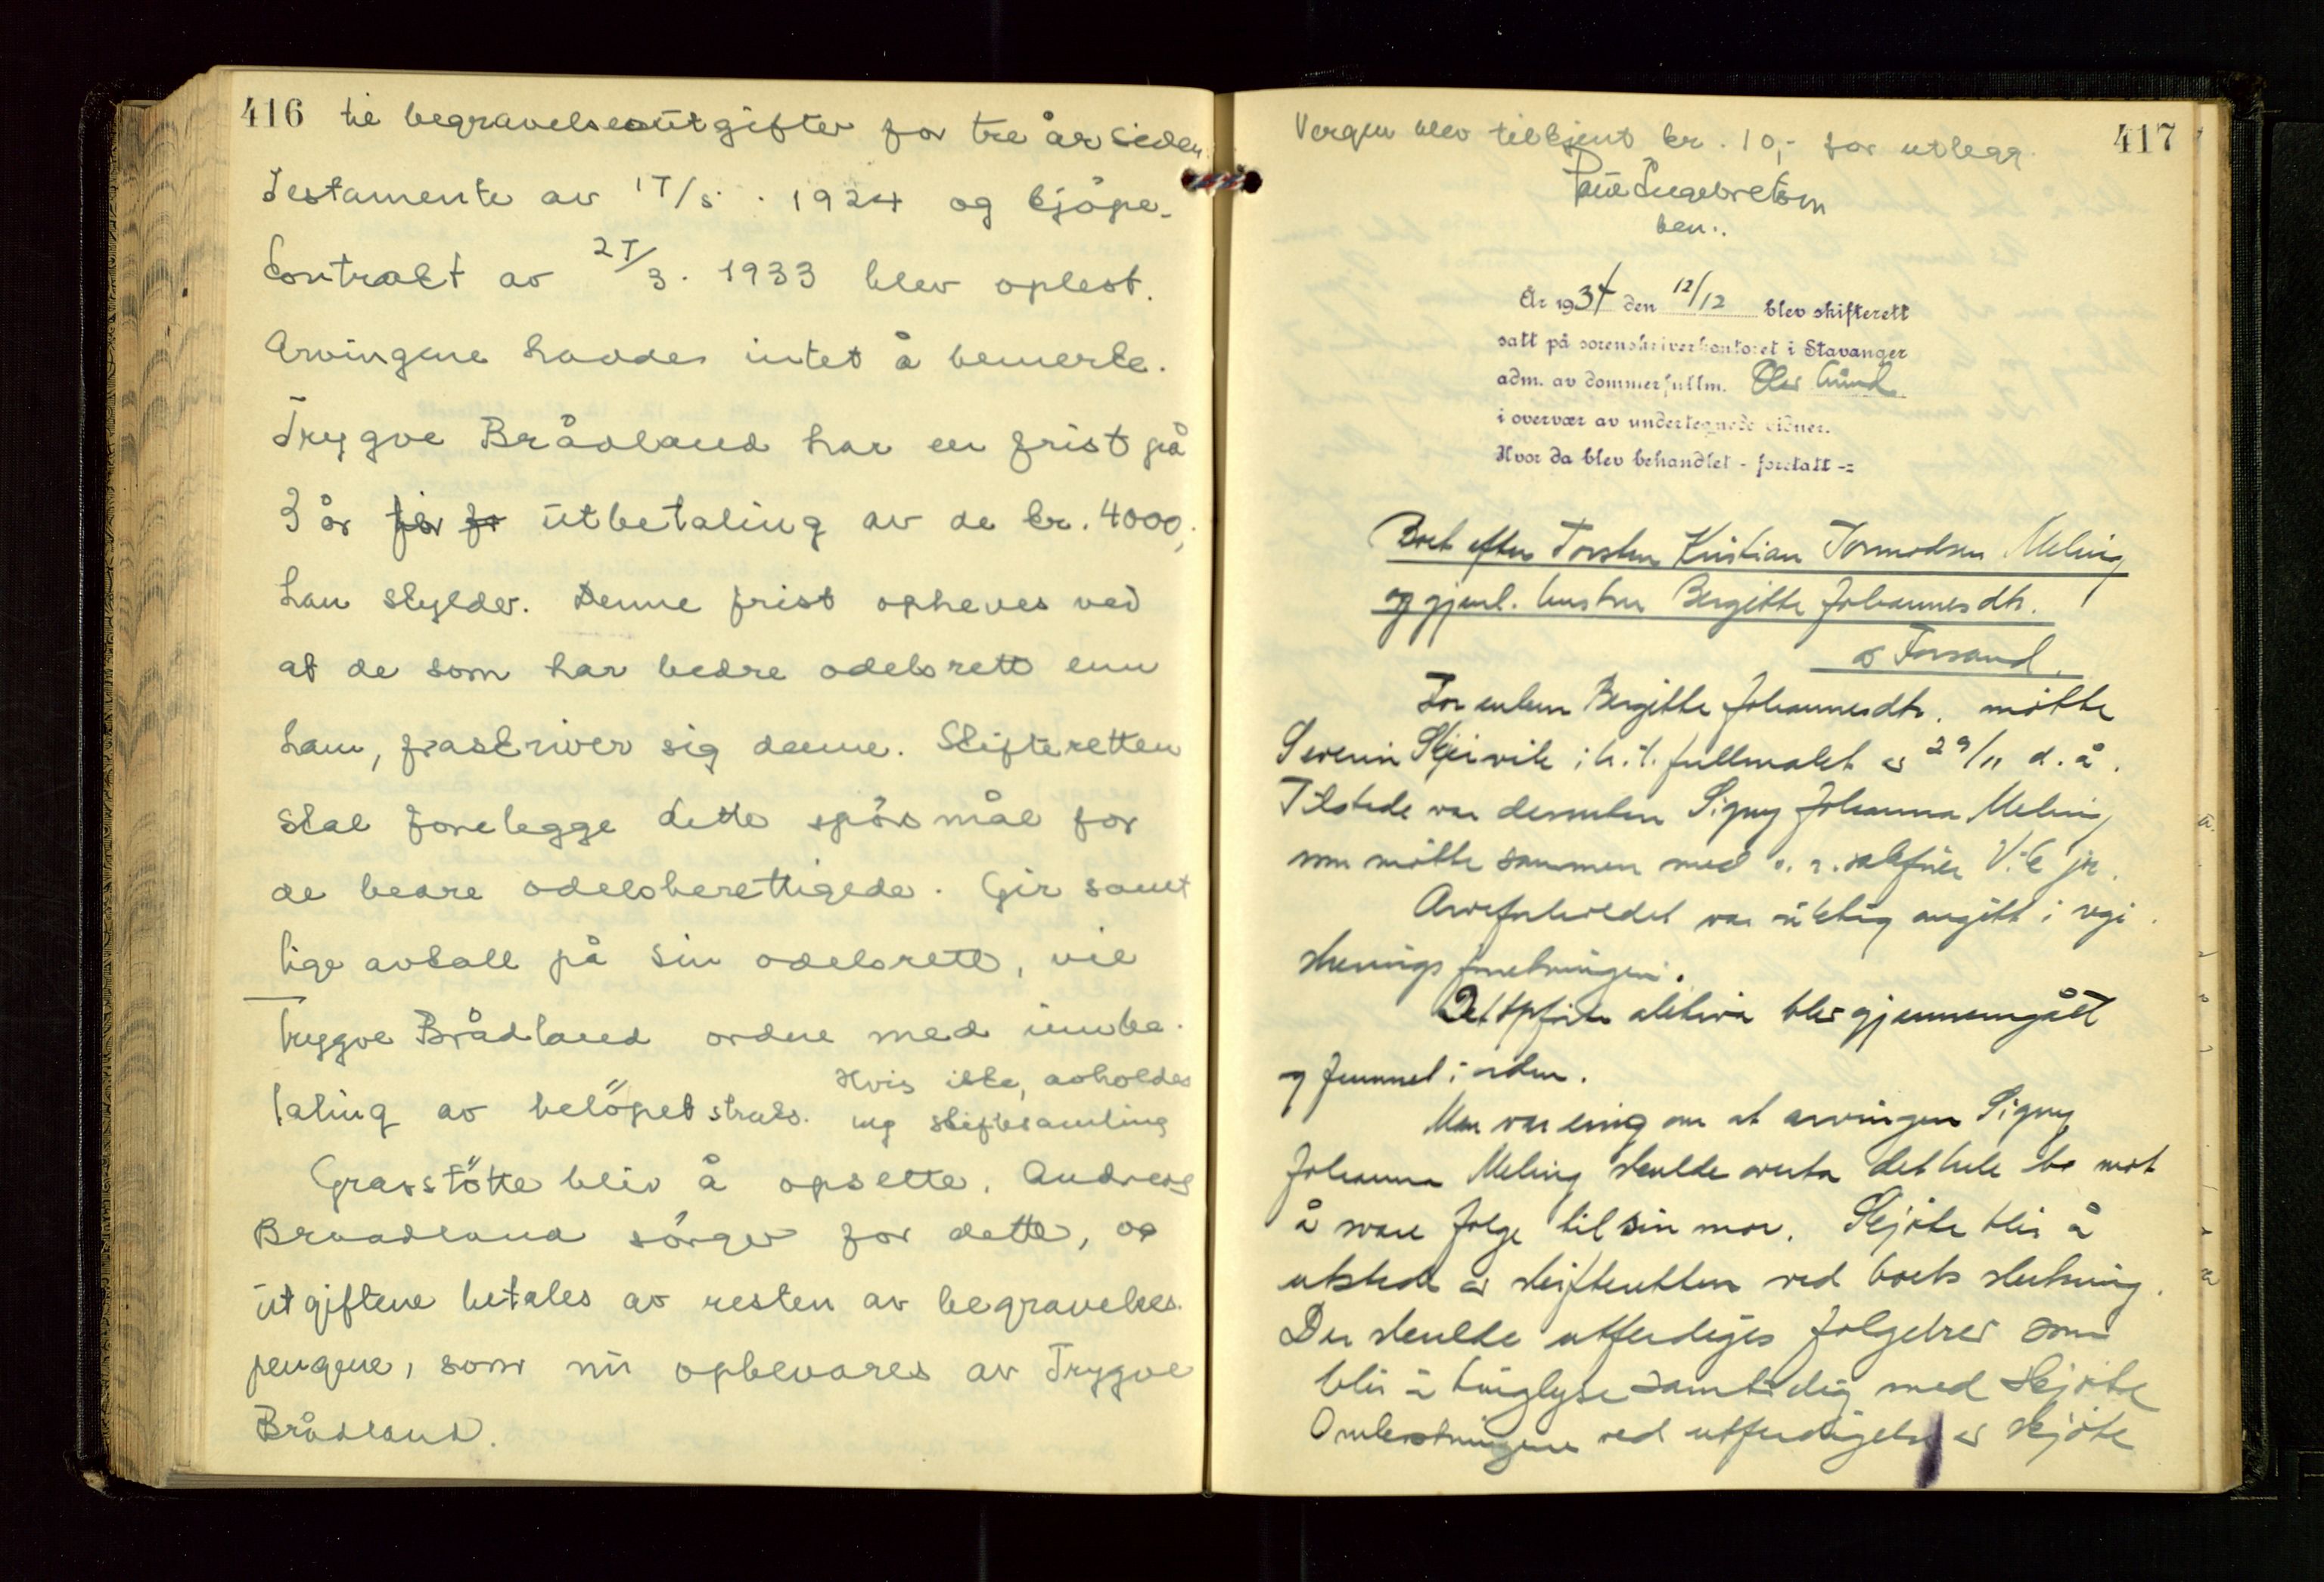 416
til begravelsesutgifter for tre år siden
Testamente av 17/5. 1924 og kjöpe-
kontrakt av 27/3. 1933 blev oplest.
Arvingene havde intet å bemerke.
Trygve Brådland har en frist på
3 år for for utbetaling av de kr. 4000,-
han skylder. Denne frist opheves ved
at de som har bedre odelsrett enn
ham, fraskriver sig denne. Skifteretten
skal forelegge dette spörsmål for
de bedre odelsberettigede. Gir samt
lige avkall på sin odelsrett, vil
Trygve Brådland ordne med innbe-
taling av belöpet straks. Hvis ikke, avholdes
ny skiftesamling
Gravstötte blir å opsette. Andreas
Braadland sörger for dette, og
utgiftene betales av resten av begravelses-
pengene, som nu opbevares av Trygve
Brådland.
417
Vergen blev tilkjent kr. 10,- for utlegg.
Ingebretsen
År 1934 den 12/12 blev skifterett
satt på sorenskriverkontoret i Stavanger
adm. av dommerfullm. Olav Lund
i overvær av undertegnede vidner.
Hvor da blev behandlet - foretatt -:
Boet efter Torsten Kristian Tormodsen Meling
og gjenl. hustru Bergitte Johannesdtr.
av Forsand.
For enken Bergitte Johannesdtr. møtte
Severin Skjeivik i h.t. fullmakt av 29/11 d.å.
Tilstede var desuten Signy Johanna Meling
som møtte sammen med o.r.sakfører Vik jr.
Arveforholdet var riktig angitt i regi
streringsforretningen.
Det opførte aktiva blev gjennemgått
og funnet i orden.
Man var enig om at arvingen Signy
Johanna Meling skulde overta det hele bo mot
å svare følge til sin mor. Skjøte blir å
utstede av skifteretten ved boets slutning.
Der skulde utferdiges følgebrev som
blir å tinglyse samtidig med skjøte
Omkostningene ved utferdigelse av skjøte